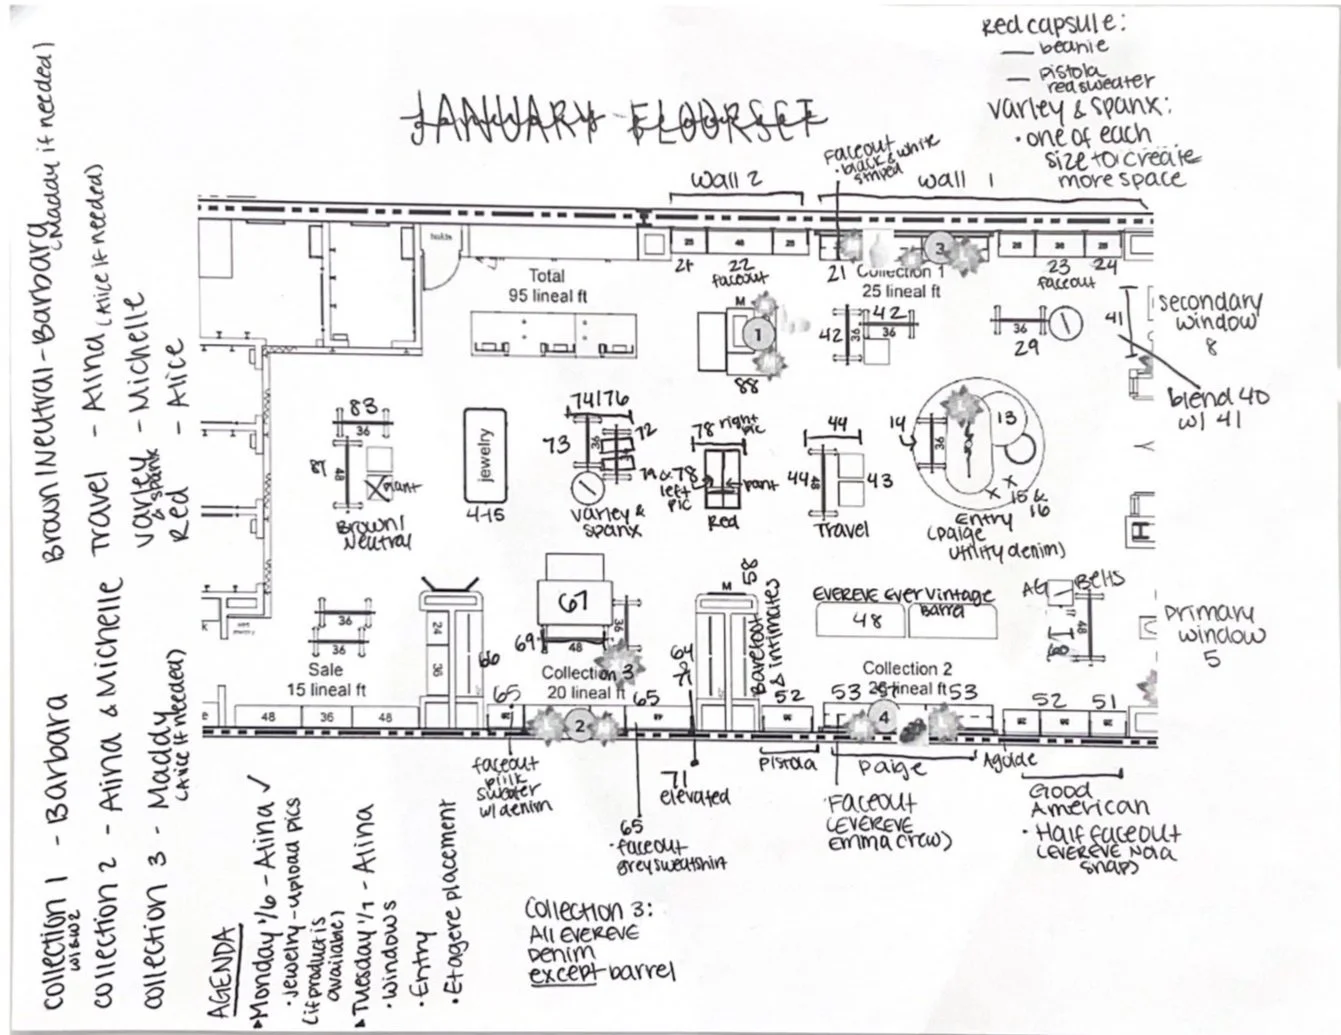 JANUARY FLOORSET
Red capsule:
— beanie
— pistola
red sweater
varley & spanx:
• one of each
size to create
more space
Faceout
• black & white
striped
wall 2
wall 1
Brown/Neutral - Barbara
(Maddy if needed)
Travel - Alina (Alice if needed)
varley & spank - Michelle
Red - Alice
Collection 1 - Barbara
w1 & w2
Collection 2 - Alina & Michelle
Collection 3 - Maddy
(Alice if needed)
AGENDA
Monday 1/6 - Alina ✓
• Jewelry - upload pics
(if product is
available)
Tuesday 1/7 - Alina
• windows
• Entry
• Etagere placement
Total
95 lineal ft
25
48
25
21
22
faceout
21
3
Collection 1
25 lineal ft
25
36
25
23
24
faceout
M
1
88
42
42
36
36
36
29
41
secondary
window
8
blend 40
w/ 41
83
36
87
48
plant
Brown/
Neutral
jewelry
4-15
74/76
73
36
72
varley &
spanx
78 right
pic
79 & 78
left
pic
pant
Red
44
44
48
43
Travel
14
36
13
15 &
16
Entry
(paige
utility denim)
36
36
Sale
15 lineal ft
48
36
48
24
36
66
67
69
48
36
Collection 3
20 lineal ft
65
65
2
64
M
58
Barefoot
& intimates
52
EVEREVE Ever Vintage
48
Barrel
Collection 2
25 lineal ft
53
53
4
AG
Belts
48
60
52
51
primary
window
5
faceout
pink
sweater
w/ denim
65
• faceout
grey sweatshirt
71
elevated
Pistola
Paige
Agolde
Faceout
(EVEREVE
Emma crew)
Good
American
• Half faceout
(EVEREVE Nola
snaps)
Collection 3:
All EVEREVE
Denim
except barrel